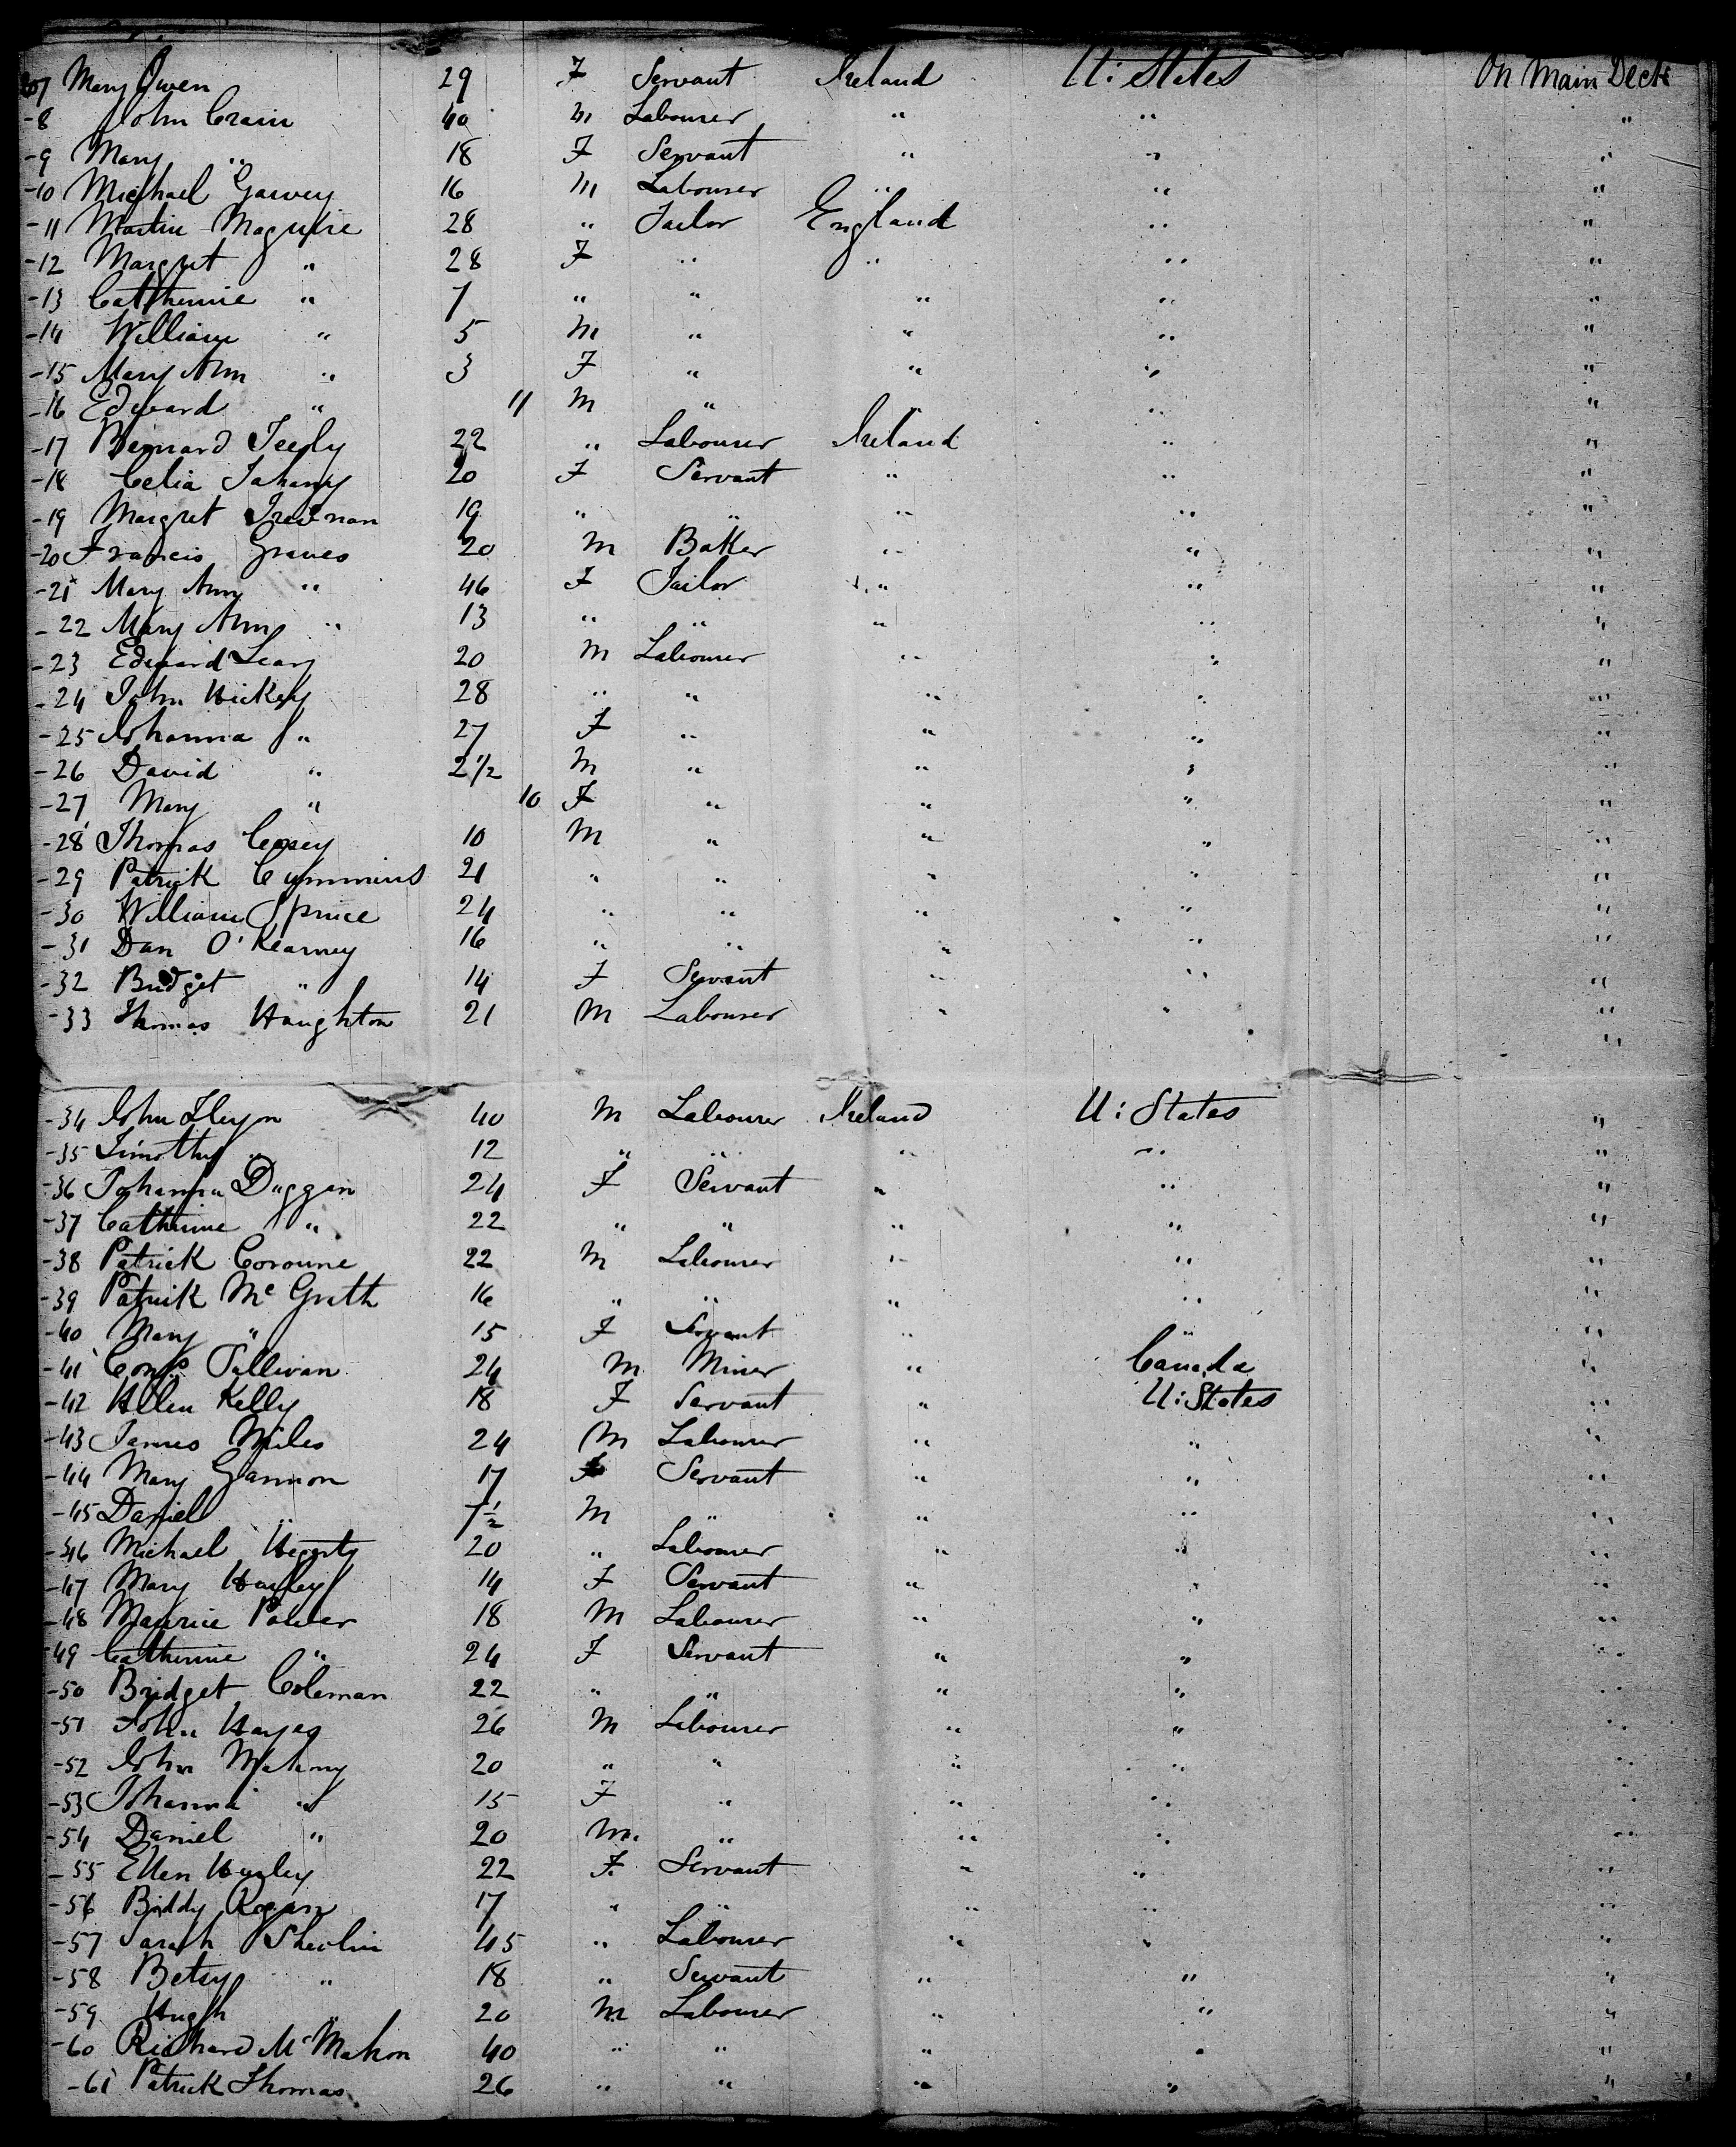 207 Mary Owen 29 F Servant Ireland U: States On Main Deck
-8 John Crain 40 m Labourer " " "
-9 Mary " 18 F Servant " " "
-10 Michael Garvey 16 m Labourer " " "
-11 Martin Maguire 28 " Tailor England " "
-12 Margret " 28 F " " " "
-13 Catherine " 7 " " " " "
-14 William " 5 M " " " "
-15 Mary Ann " 3 F " " " "
-16 Edward " 11 M " " " "
-17 Bernard 22 " Labourer Ireland " "
-18 Celia Tahany 20 F Servant " " "
-19 Margret 19 " " " " "
-20 Francis Graves 20 M Baker " " "
-21 Mary Ann " 46 F Tailor " " "
-22 Mary Ann " 13 " " " " "
-23 Edward Leary 20 M Labourer " " "
-24 John Hickey 28 " " " " "
-25 Johanna " 27 F " " " "
-26 David " 2 1/2 M " " " "
-27 Mary " 10 F " " " "
-28 Thomas Casey 10 M " " " "
-29 Patrick Cummins 21 " " " " "
-30 William Spruce 24 " " " " "
-31 Dan O'Kearney 16 " " " " "
-32 Bridget " 14 F Servant " " "
-33 Thomas Haughton 21 M Labourer " " "
-34 John Flryn 40 M Labourer Ireland U: States "
-35 Timothy " 12 " " " " "
-36 Johanna Duggan 24 F Servant " " "
-37 Catherine " 22 " " " " "
-38 Patrick Coroune 22 M Labourer " " "
-39 Patrick Mc Grath 16 " " " " "
-40 Mary " 15 F Servant " " "
-41 Corns Sullivan 24 M Miner " Canada "
-42 Ellen Kelly 18 F Servant " U: States "
-43 James Miles 24 M Labourer " " "
-44 Mary Gannon 17 F Servant " " "
-45 Daniel " 7 1/2 M " " " "
-46 Michael Hegarty 20 " Labourer " " "
-47 Mary Hurley 14 F Servant " " "
-48 Maurice Power 18 M Labourer " " "
-49 Catherine " 24 F Servant " " "
-50 Bridget Coleman 22 " " " " "
-51 John Hayes 26 M Labourer " " "
-52 John Mahony 20 " " " " "
-53 Johanna " 15 F " " " "
-54 Daniel " 20 M. " " " "
-55 Ellen Hurley 22 F. Servant " " "
-56 Biddy Regan 17 " " " " "
-57 Sarah Sheolin 45 " Labourer " " "
-58 Betsy " 18 " Servant " " "
-59 Hugh " 20 M Labourer " " "
-60 Richard McMahon 40 " " " " "
-61 Patrick Thomas 26 " " " " "